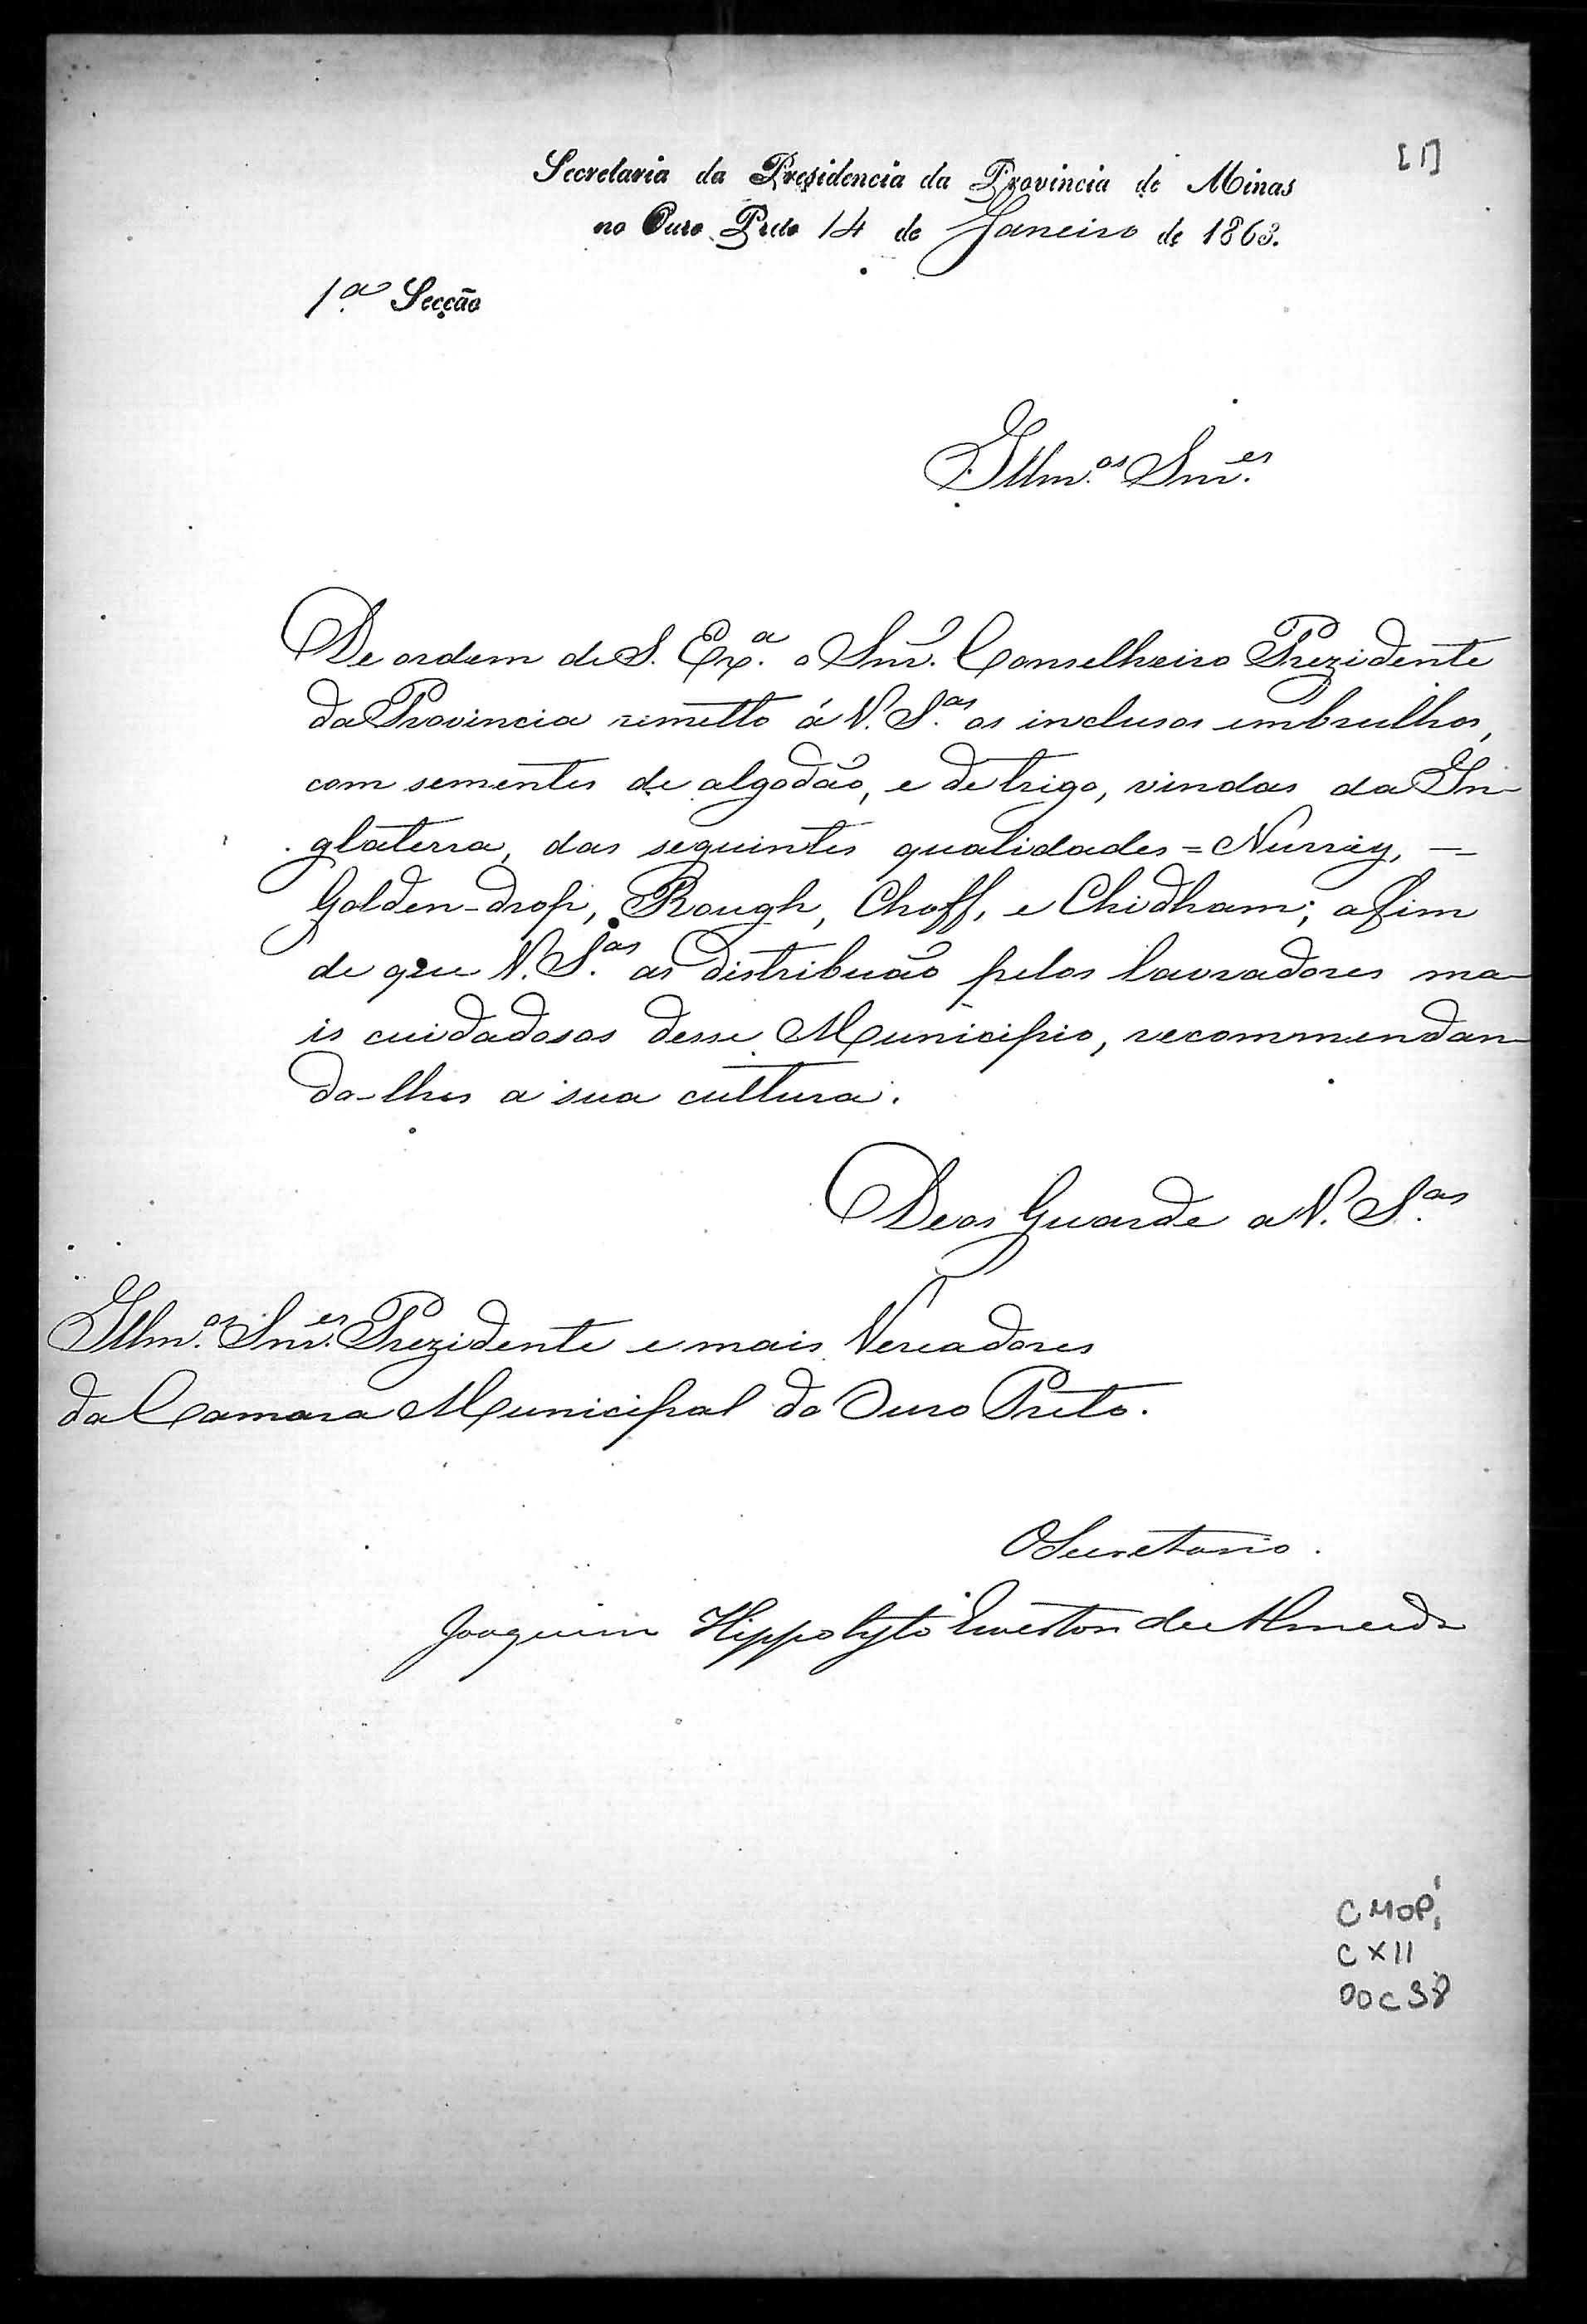 [1]
Secretaria da Presidencia da Provincia de Minas
no Ouro Preto 14 de Janeiro de 1863.
1.ª Secção
Illm.os Snr.es
De ordem de S. Ex.ª o Snr. Conselheiro Prezidente
da Provincia remetto á V. S.as os inclusos embrulhos,
com sementes de algodão, e de trigo, vindas da In-
glaterra, das seguintes qualidades = Nurrey, —
Golden-drop, Rough, Choff, e Chidham; afim
de que V. S.as as distribuão pelos lavradores ma-
is cuidadosos desse Municipio, recommendan-
do-lhes a sua cultura.
Deos Guarde a V. S.as
Illm.os Snr.es Prezidente e mais Vereadores
da Camara Municipal do Ouro Preto.
O Secretario.
Joaquim Hippolyto Ewerton de Almeida
CMOP
CXII
DOC 38